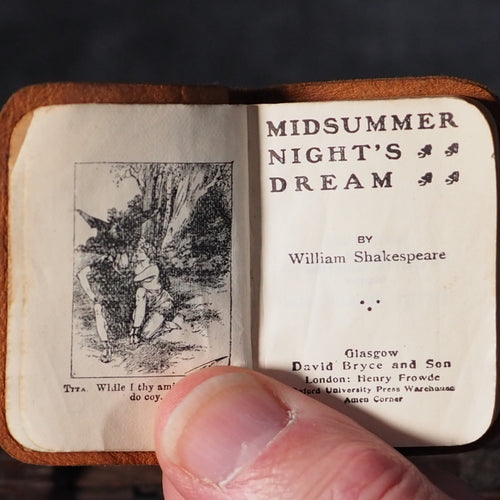 Tita. While I thy ami
do coy.
MIDSUMMER
NIGHT'S
DREAM
BY
William Shakespeare
Glasgow
David Bryce and Son
London: Henry Frowde
xford University Press Warehouse
Amen Corner